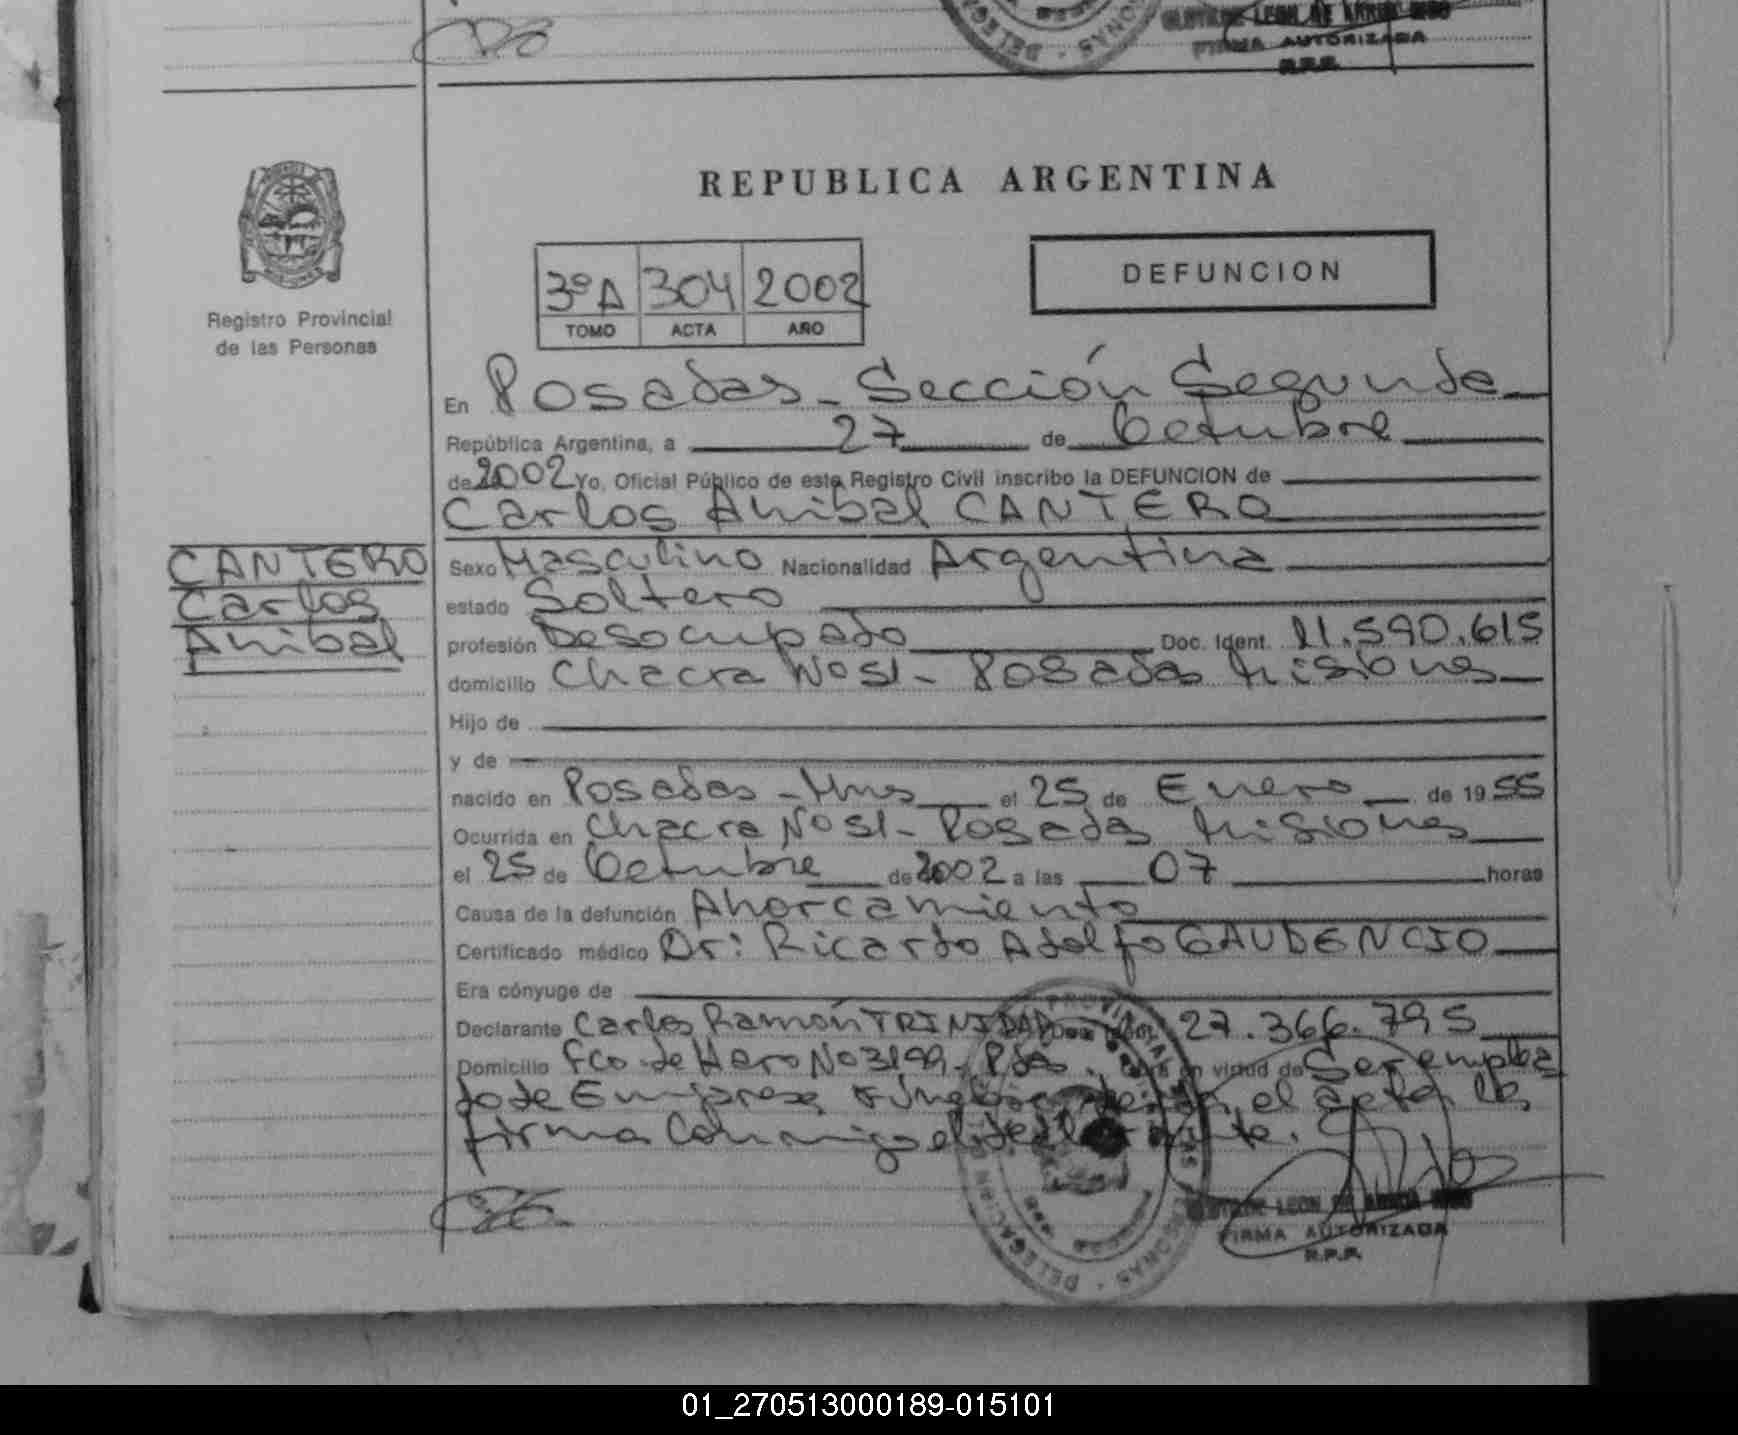 FIRMA AUTORIZADA
R.P.P.
REPUBLICA ARGENTINA
Registro Provincial
de las Personas
3ºA 304 2002
TOMO ACTA AÑO
DEFUNCION
En Posadas - Sección Segunda
República Argentina, a 27 de Octubre
de 2002 Yo, Oficial Público de este Registro Civil inscribo la DEFUNCION de
Carlos Anibal CANTERO
CANTERO
Carlos
Anibal
Sexo Masculino Nacionalidad Argentina
estado Soltero
profesión Desocupado Doc. Ident. 11.590.615
domicilio Chacra Nº 51 - Posadas Misiones
Hijo de
y de
nacido en Posadas - Mnes el 25 de Enero de 1955
Ocurrida en Chacra Nº 51 - Posadas Misiones
el 25 de Octubre de 2002 a las 07 horas
Causa de la defunción Ahorcamiento
Certificado médico Dr: Ricardo Adolfo GAUDENCIO
Era cónyuge de
Declarante Carlos Ramón TRINIDAD 27.366.795
Domicilio Fco. de Haro Nº 3199 - Pdas. en virtud de Ser emplea
do de Empresa el acta la
firma Conmigo el declarante.
FIRMA AUTORIZADA
R.P.P.
01_270513000189-015101